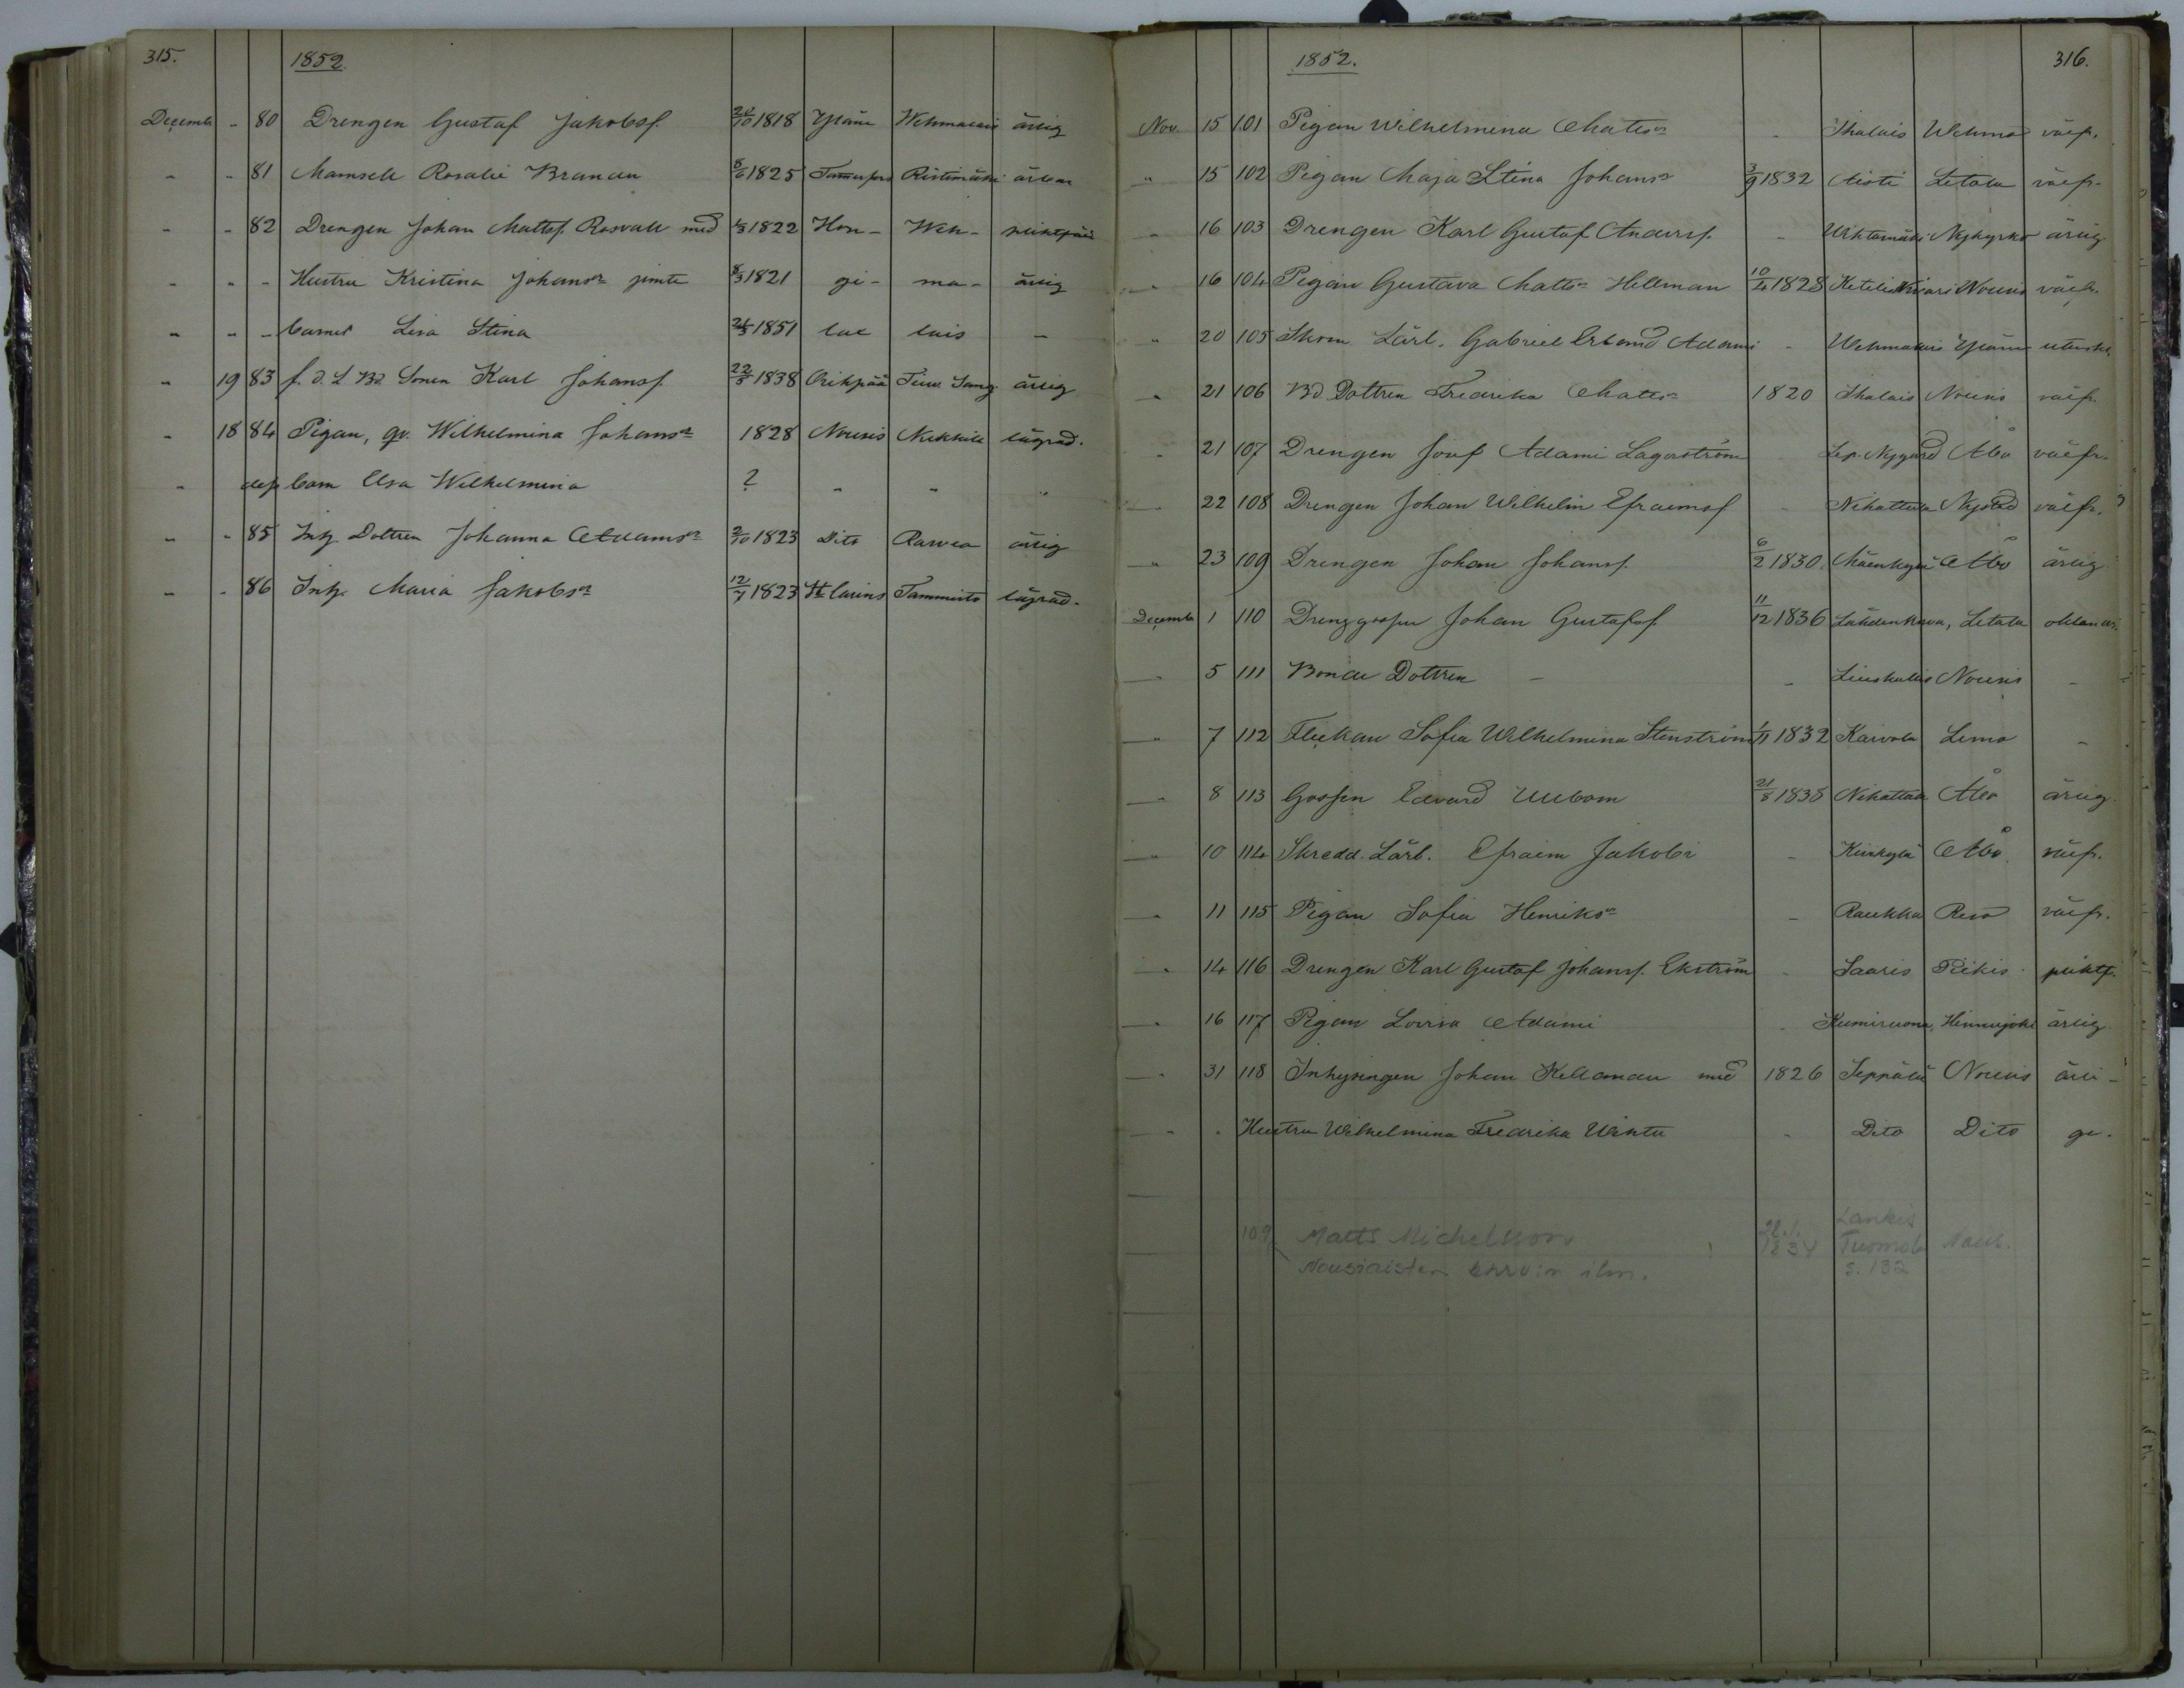 315.
1852.
Decemb. - 80 Drengen Gustaf Jakobsf. 24/10 1818 Ypäne Wehmalais ärlig
- - 81 Mamsell Rosalie Brander 8/6 1825 Tammerfors Ristimäki
- - 82 Drengen Johan Mattsf. Rosvall med 1822 Hon- Weh-
- - - Hustru Kristina Johansdr jemte 1821 gi- ma- ärlig
- - - barnet Lisa Stina 1851 lae lais -
- 19 83 f. d. L Bd. Sonen Karl Johansf. 22/5 1838 Orihpää ärlig
- 18 84 Pigan, qv. Wilhelmina Johansdr 1828 Nousis Nikkilä lägrad.
- dess barn Elsa Wilhelmina ? - - "
- - 85 Inh. Dottren Johanna Adamsdr 2/10 1823 Dito ärlig
- - 86 Inh. Maria Jakobsdr 12/7 1823 St Carins Tammisto lägrad.
1852.
316.
Nov. 15 101 Pigan Wilhelmina Mattsdr - Thalais Wehmo välfr.
" 15 102 Pigan Maja Stina Johansdr 3/9 1832 Aisti Letala välfr.
- 16 103 Drengen Karl Gustaf Andersf. - Nykyrko ärlig
- 16 104 Pigan Gustava Mattsdr Hellman 10/4 1828 Nousis välfr.
" 20 105 Skom. Lärl. Gabriel Erland Adami - Wehmalais Ypäne
" 21 106 Bd. Dottren Fredrika Mattsdr 1820 Thalais Nousis välfr.
" 21 107 Drengen Josef Adami Lagerström Lep. Nygård Åbo välfr.
- 22 108 Drengen Johan Wilhelm Efraimsf - Nihattula Nystad välfr.
" 23 109 Drengen Johan Johansf. 6/2 1830. Mäenkylä Åbo ärlig
Decemb. 1 110 Drenggossen Johan Gustafsf. 11/12 1836 Letala
- 5 111 Bonde Dottren - - Liuskallis Nousis -
- 7 112 Flickan Sofia Wilhelmina Stenström 1/11 1832 Kaivola Lemo -
- 8 113 Gossen Edvard Uulbom 21/8 1838 Nihattula Åbo ärlig
- 10 114 Skredd. Lärl. Efraim Jakobi - Kiirkylä Åbo välfr.
- 11 115 Pigan Sofia Henriksdr - Raukka Reso välfr.
- 14 116 Drengen Karl Gustaf Johansf. Ekström - Saaris Pikis
- 16 117 Pigan Lovisa Adami - Hinnerjoki ärlig
- 31 118 Inhysingen Johan Kellander med 1826 Seppälä Nousis ärli-
- - Hustru Wilhelmina Fredrika Wiktu - Dito Dito ge.
109 Matts Michelsson 1834 Lankis Tuomola Nous.
Nousiaisten s. 132